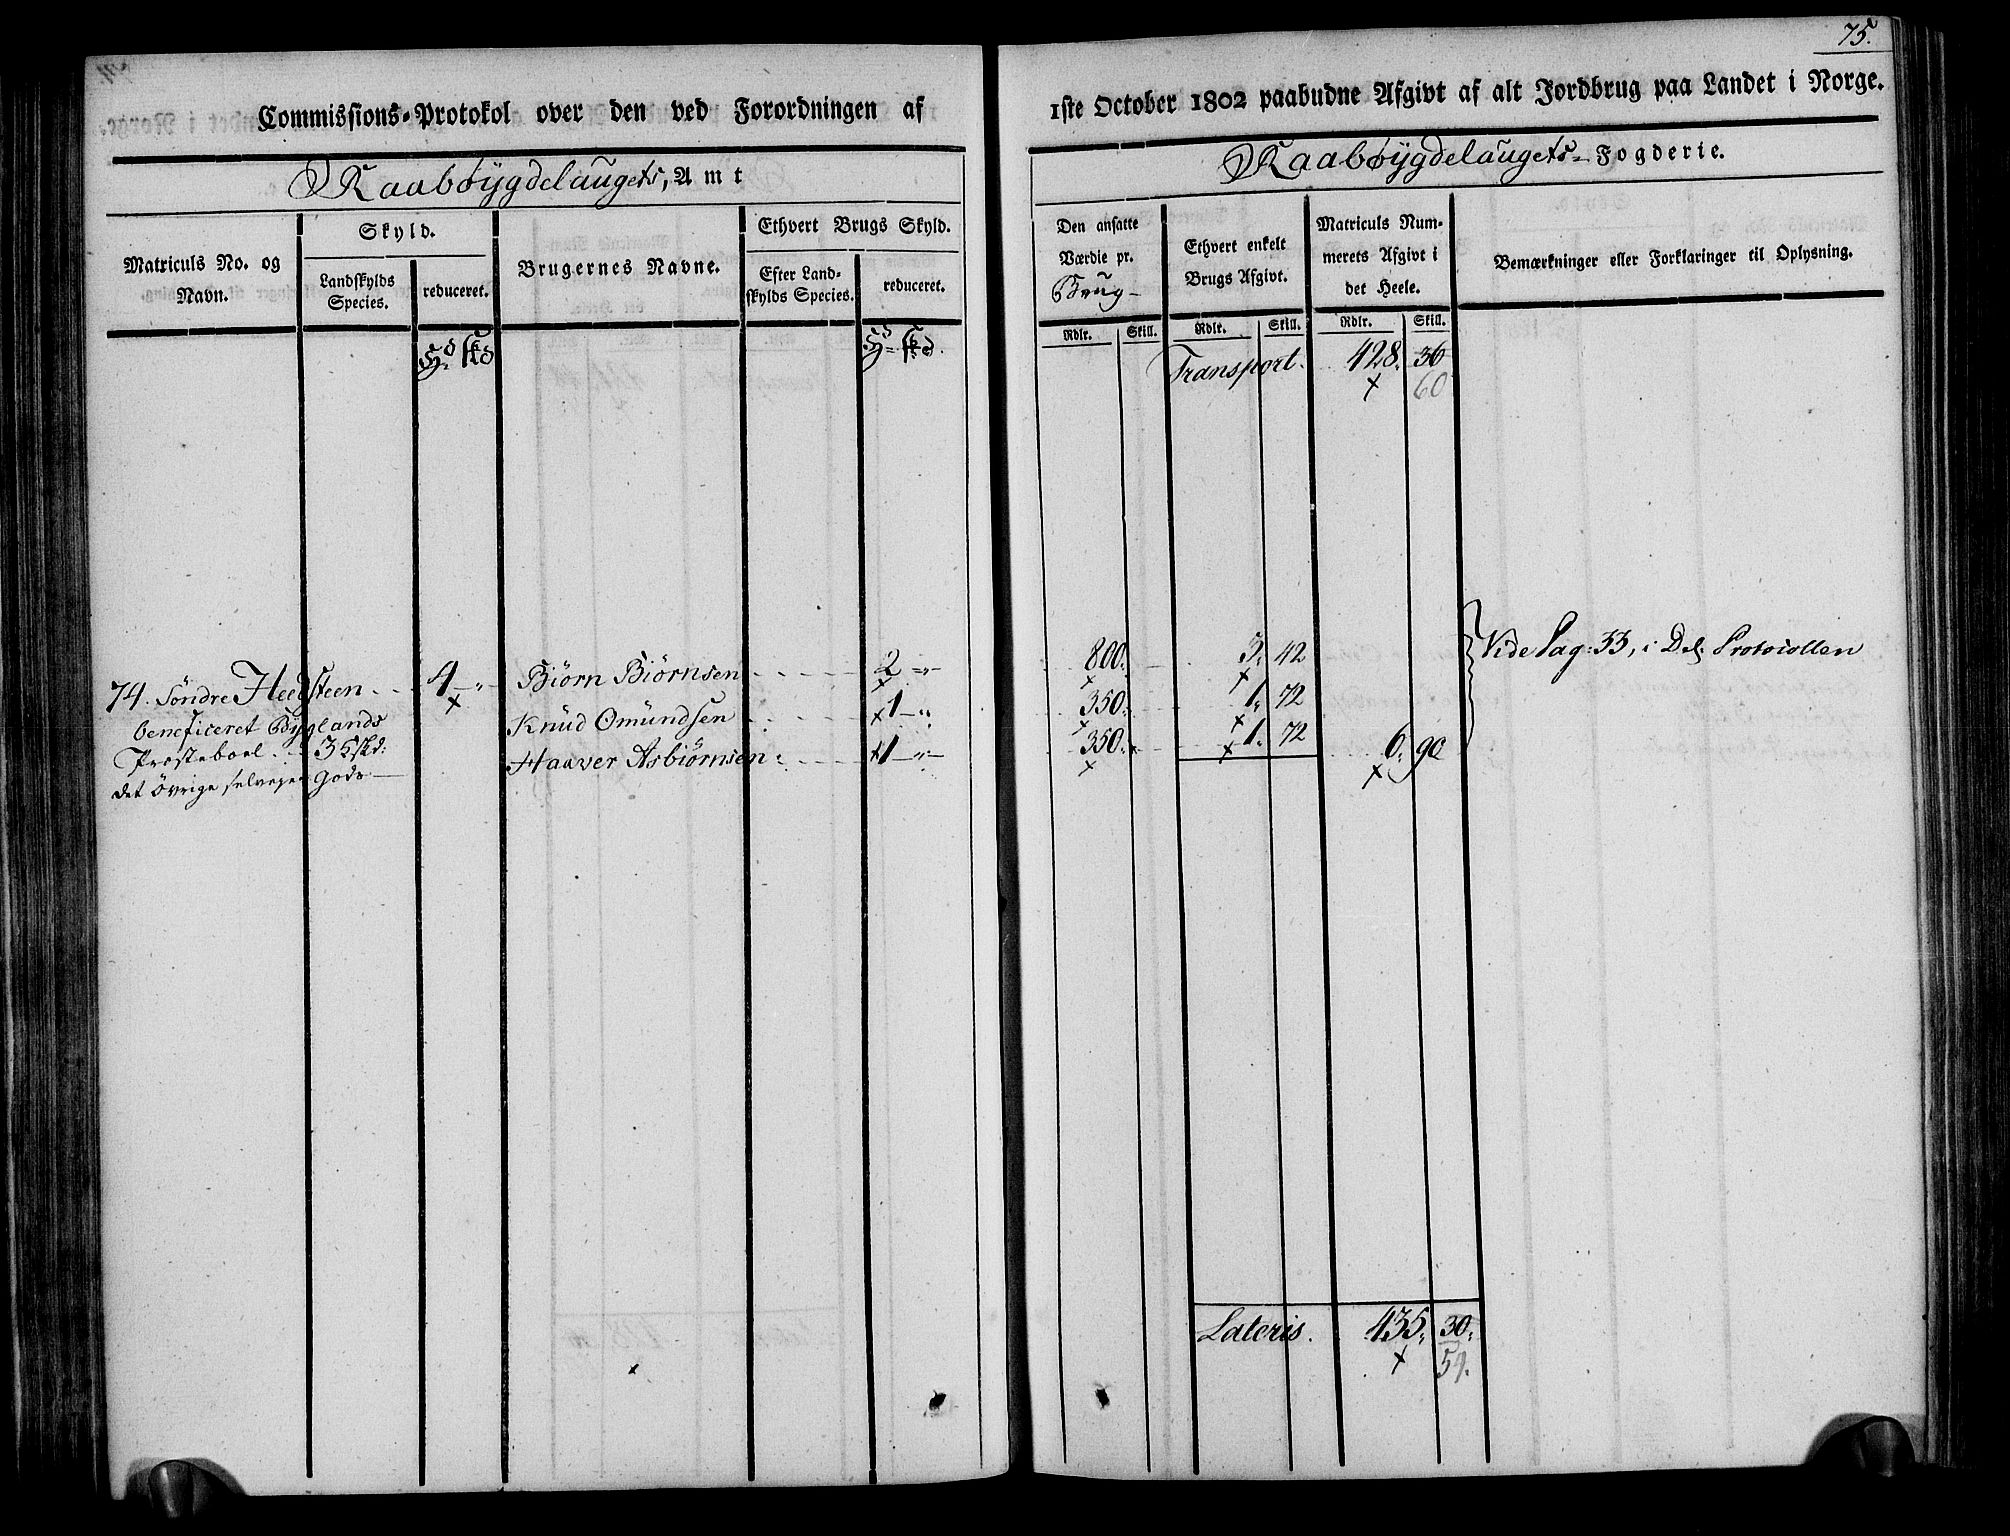 75.
Commissions-Protokol over den ved Forordningen af
1ste October 1802 paabudne Afgivt af alt Jordbrug paa Landet i Norge.
Raabøygdelaugets, Amt
Raabøygdelaugets- Fogderie.
Matriculs No. og Navn.
Skyld.
Landskylds Species.
reduceret.
Brugernes Navne.
Ethvert Brugs Skyld.
Efter Landskylds Species.
reduceret.
Den ansatte Værdie pr. Brug-
Ethvert enkelt Brugs Afgivt.
Matriculs Nummerets Afgivt i det Heele.
Bemærkninger eller Forklaringer til Oplysning.
Rdlr. Skill. Rdlr. Skill. Rdlr. Skill.
Transport. 428. 36
60
74. Søndre Heegsteen 4 Biørn Biørnsen 2 800. 3. 42 Vide Pag: 33, i Del. Protocollen
beneficeret Byglands Knud Omundsen 1 350. 1. 72
Præsteboel 3 Skd: Haaver Asbiørnsen 1 350. 1. 72 6. 90
det øvrige selveyer Gods
Lateris. 435. 30.